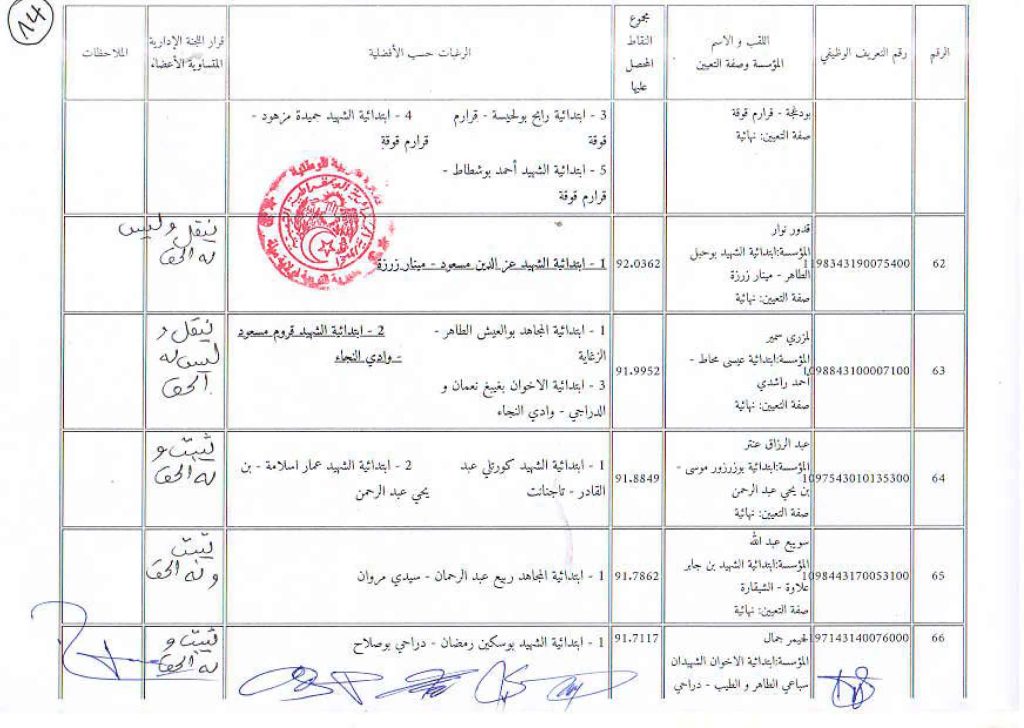 14
الرقم
رقم التعريف الوظيفي
اللقب و الاسم
المؤسسة وصفة التعيين
مجموع
النقاط
المحصل
عليها
الرغبات حسب الأفضلية
قرار اللجنة الإدارية
المتساوية الأعضاء
الملاحظات
- قرارم قوقة
صفة التعيين: نهائية
3 - ابتدائية رابح بولحيسة - قرارم
قوقة
4 - ابتدائية الشهيد حميدة مزهود -
قرارم قوقة
5 - ابتدائية الشهيد أحمد بوشطاط -
قرارم قوقة
62
1198343190075400
قدور نوار
المؤسسة:ابتدائية الشهيد بوحبل
الطاهر - مينار زرزة
صفة التعيين: نهائية
92.0362
1 - ابتدائية الشهيد عز الدين مسعود - مينار زرزة
ينقل وليس
له الحق
63
1098843100007100
لمزري سمير
المؤسسة:ابتدائية عيسى محاط -
احمد راشدي
صفة التعيين: نهائية
91.9952
1 - ابتدائية المجاهد بوالعيش الطاهر -
الزغاية
2 - ابتدائية الشهيد قروم مسعود
- وادي النجاء
3 - ابتدائية الاخوان بغيبغ نعمان و
الدراجي - وادي النجاء
ينقل و
ليس له
الحق
64
1097543010135300
عبد الرزاق عنتر
المؤسسة:ابتدائية بوزرزور موسى -
بن يحي عبد الرحمن
صفة التعيين: نهائية
91.8849
1 - ابتدائية الشهيد كورتلي عبد
القادر - تاجنانت
2 - ابتدائية الشهيد عمار اسلامة - بن
يحي عبد الرحمن
يثبت و
له الحق
65
1098443170053100
سويبع عبد الله
المؤسسة:ابتدائية الشهيد بن جابر
علاوة - الشيقارة
صفة التعيين: نهائية
91.7862
1 - ابتدائية المجاهد ربيع عبد الرحمان - سيدي مروان
يثبت
و له الحق
66
197143140076000
لحيمر جمال
المؤسسة:ابتدائية الاخوان الشهيدان
سباعي الطاهر و الطيب - دراحي
91.7117
1 - ابتدائية الشهيد بوسكين رمضان - دراحي بوصلاح
يثبت و
له الحق